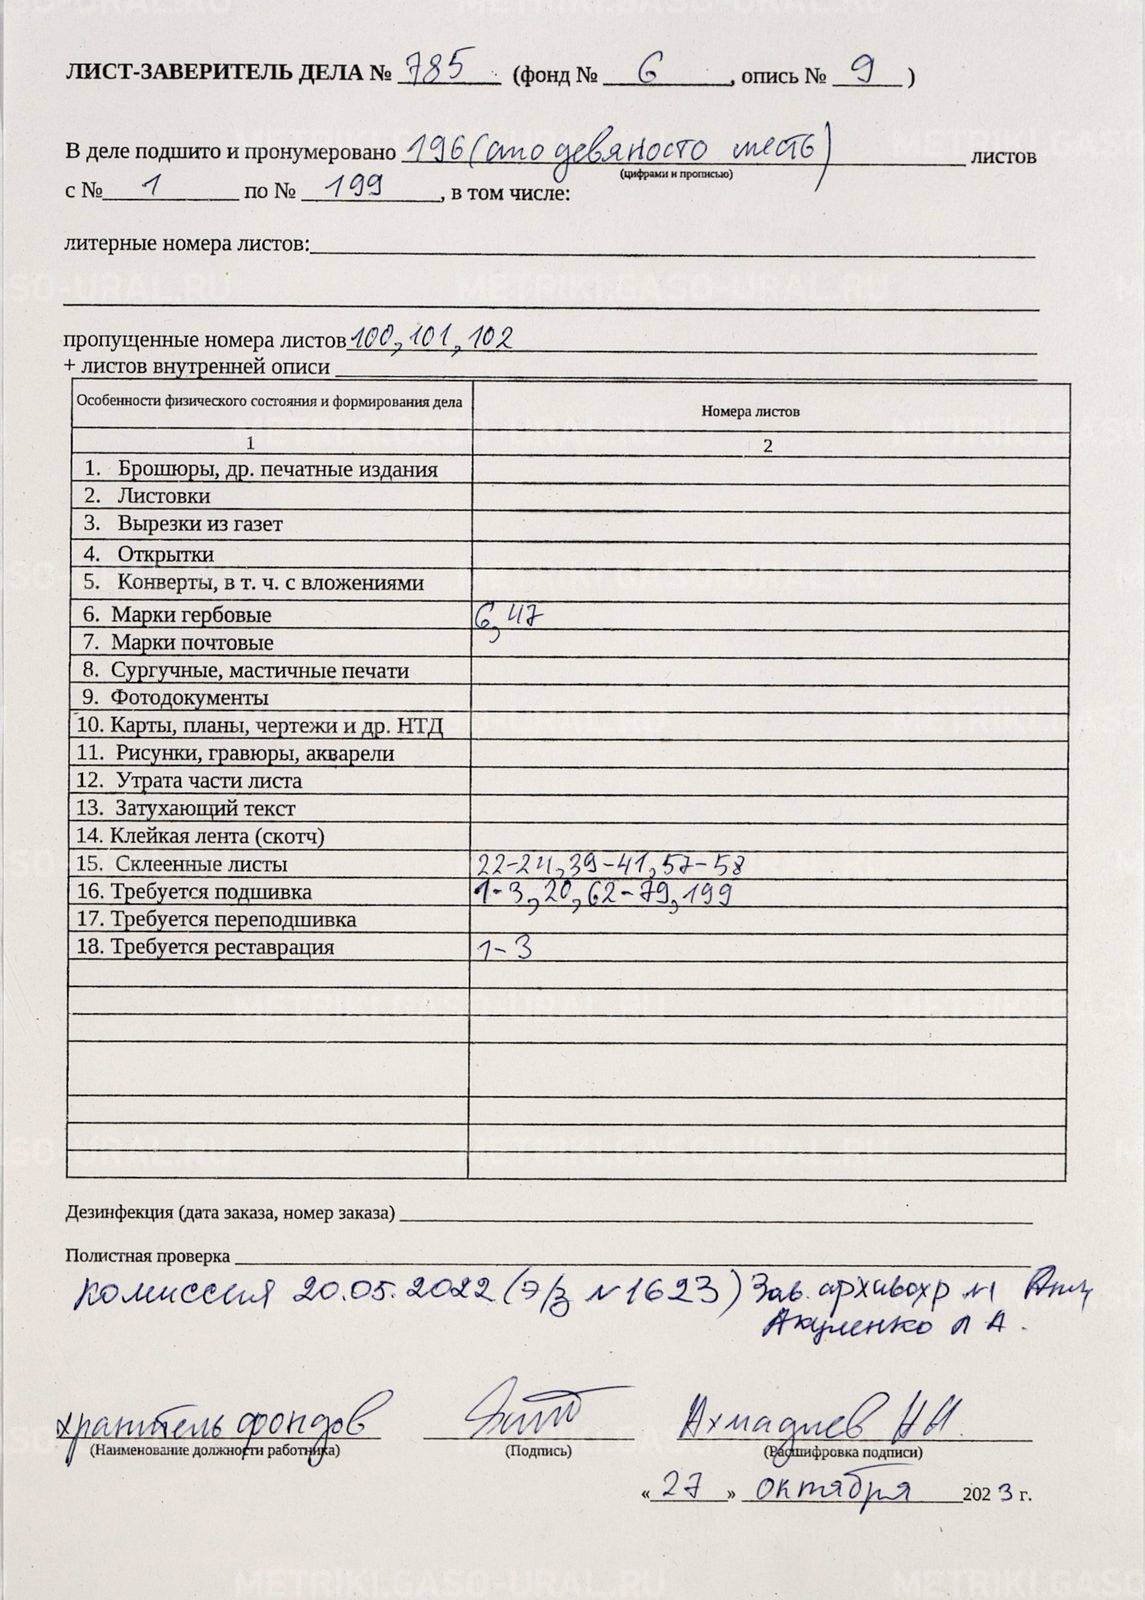 ЛИСТ-ЗАВЕРИТЕЛЬ ДЕЛА № 785 (фонд № 6, опись № 9)
В деле подшито и пронумеровано 196 (сто девяносто шесть) листов
(цифрами и прописью)
с № 1 по № 199, в том числе:
литерные номера листов:
пропущенные номера листов 100, 101, 102
+ листов внутренней описи
Особенности физического состояния и формирования дела Номера листов
1 2
1. Брошюры, др. печатные издания
2. Листовки
3. Вырезки из газет
4. Открытки
5. Конверты, в т. ч. с вложениями
6. Марки гербовые 6, 47
7. Марки почтовые
8. Сургучные, мастичные печати
9. Фотодокументы
10. Карты, планы, чертежи и др. НТД
11. Рисунки, гравюры, акварели
12. Утрата части листа
13. Затухающий текст
14. Клейкая лента (скотч)
15. Склеенные листы 22-24, 39-41, 57-58
16. Требуется подшивка 1-3, 20, 62-79, 199
17. Требуется переподшивка
18. Требуется реставрация 1-3
Дезинфекция (дата заказа, номер заказа)
Полистная проверка
комиссия 20.05.2022 (э/з №1623) Зав. архивохр №1
Акуленко Л А.
хранитель фондов Ахмадиев Н И.
(Наименование должности работника) (Подпись) (Расшифровка подписи)
«27» октября 2023 г.
METRIKI.GASO-URAL.RU